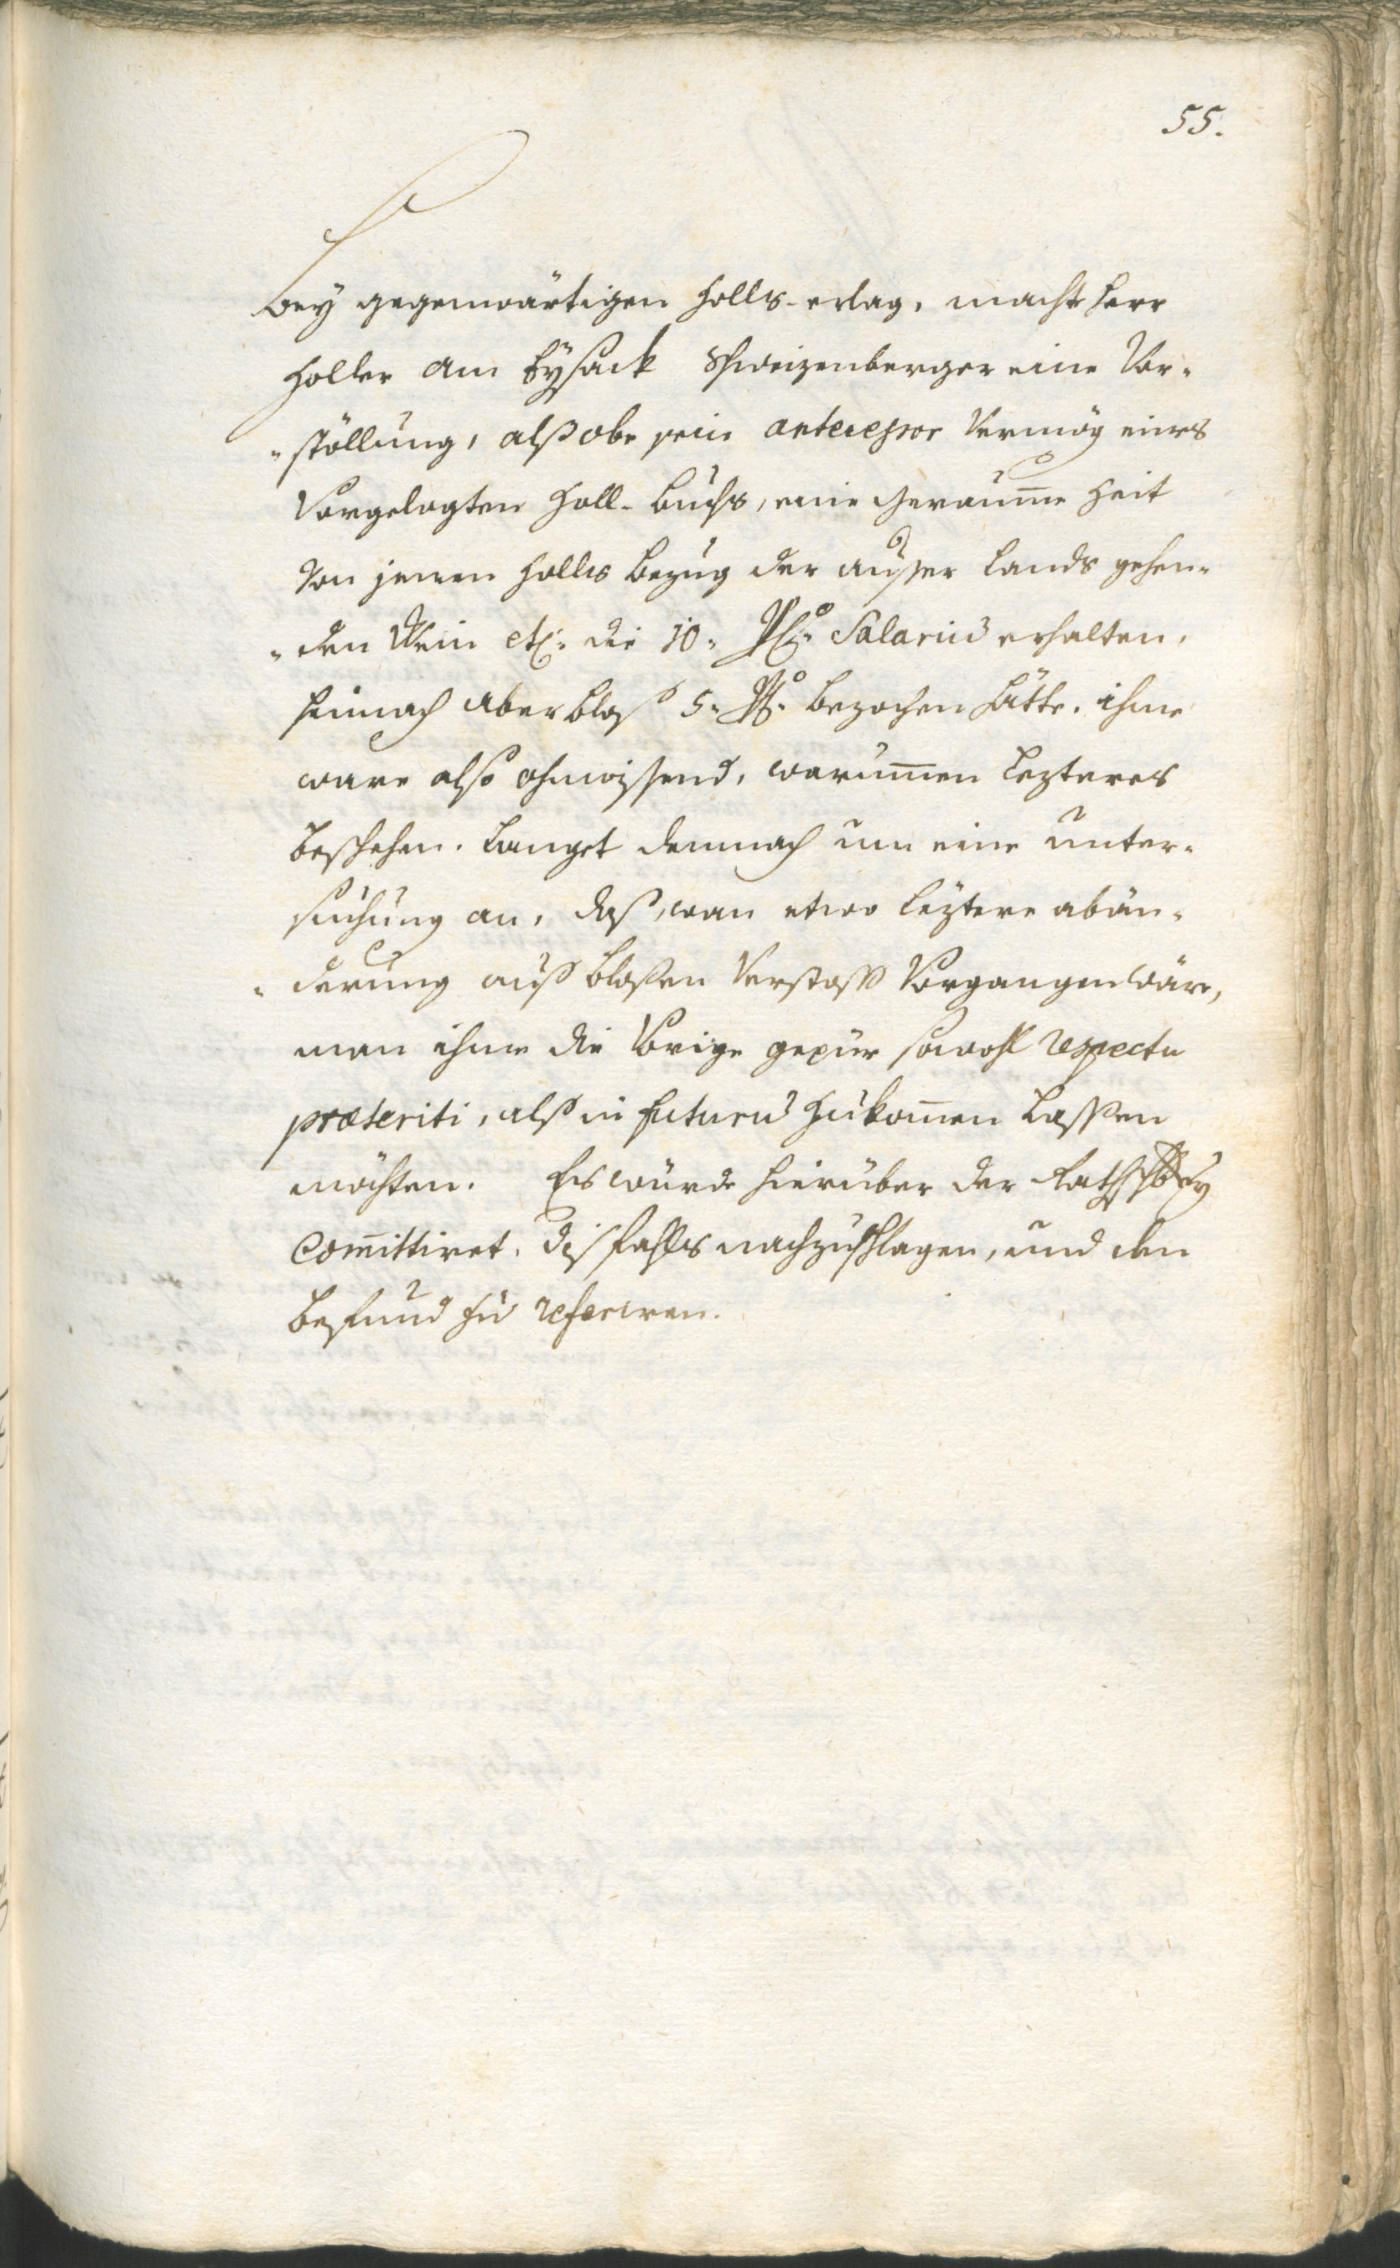 55.
Bey gegenwärtigen Zolls-erlag, macht Herr
Zoller am Eysack Schweizenberger eine Vor-
-stöllung, alß obe sein antecessor Vermög eines
Vorgelegten Zoll-buchs, eine Geraume Zeit
Von jenen Zolls bezug der ausser Lands gehen-
-den Wein etc: die 10. Pc:to Salariu erhalten,
hinach aber blos 5. Pc:to bezochen hätte. ihme
ware also ohnwissend, warumen lezteres
beschehen. langet demnach um eine unter-
suchung an, daß, wan etwo leztere abän-
-derung auß bloßen Verstoss Vorgangen wäre,
man ihme die Vorige gepür sowohl respectu
præteriti, alß in futuru zukomen lassen
möchten. Es wurde hierüber der
Comittiret, disfahls nachzuschlagen, und den
befund zu referiren.